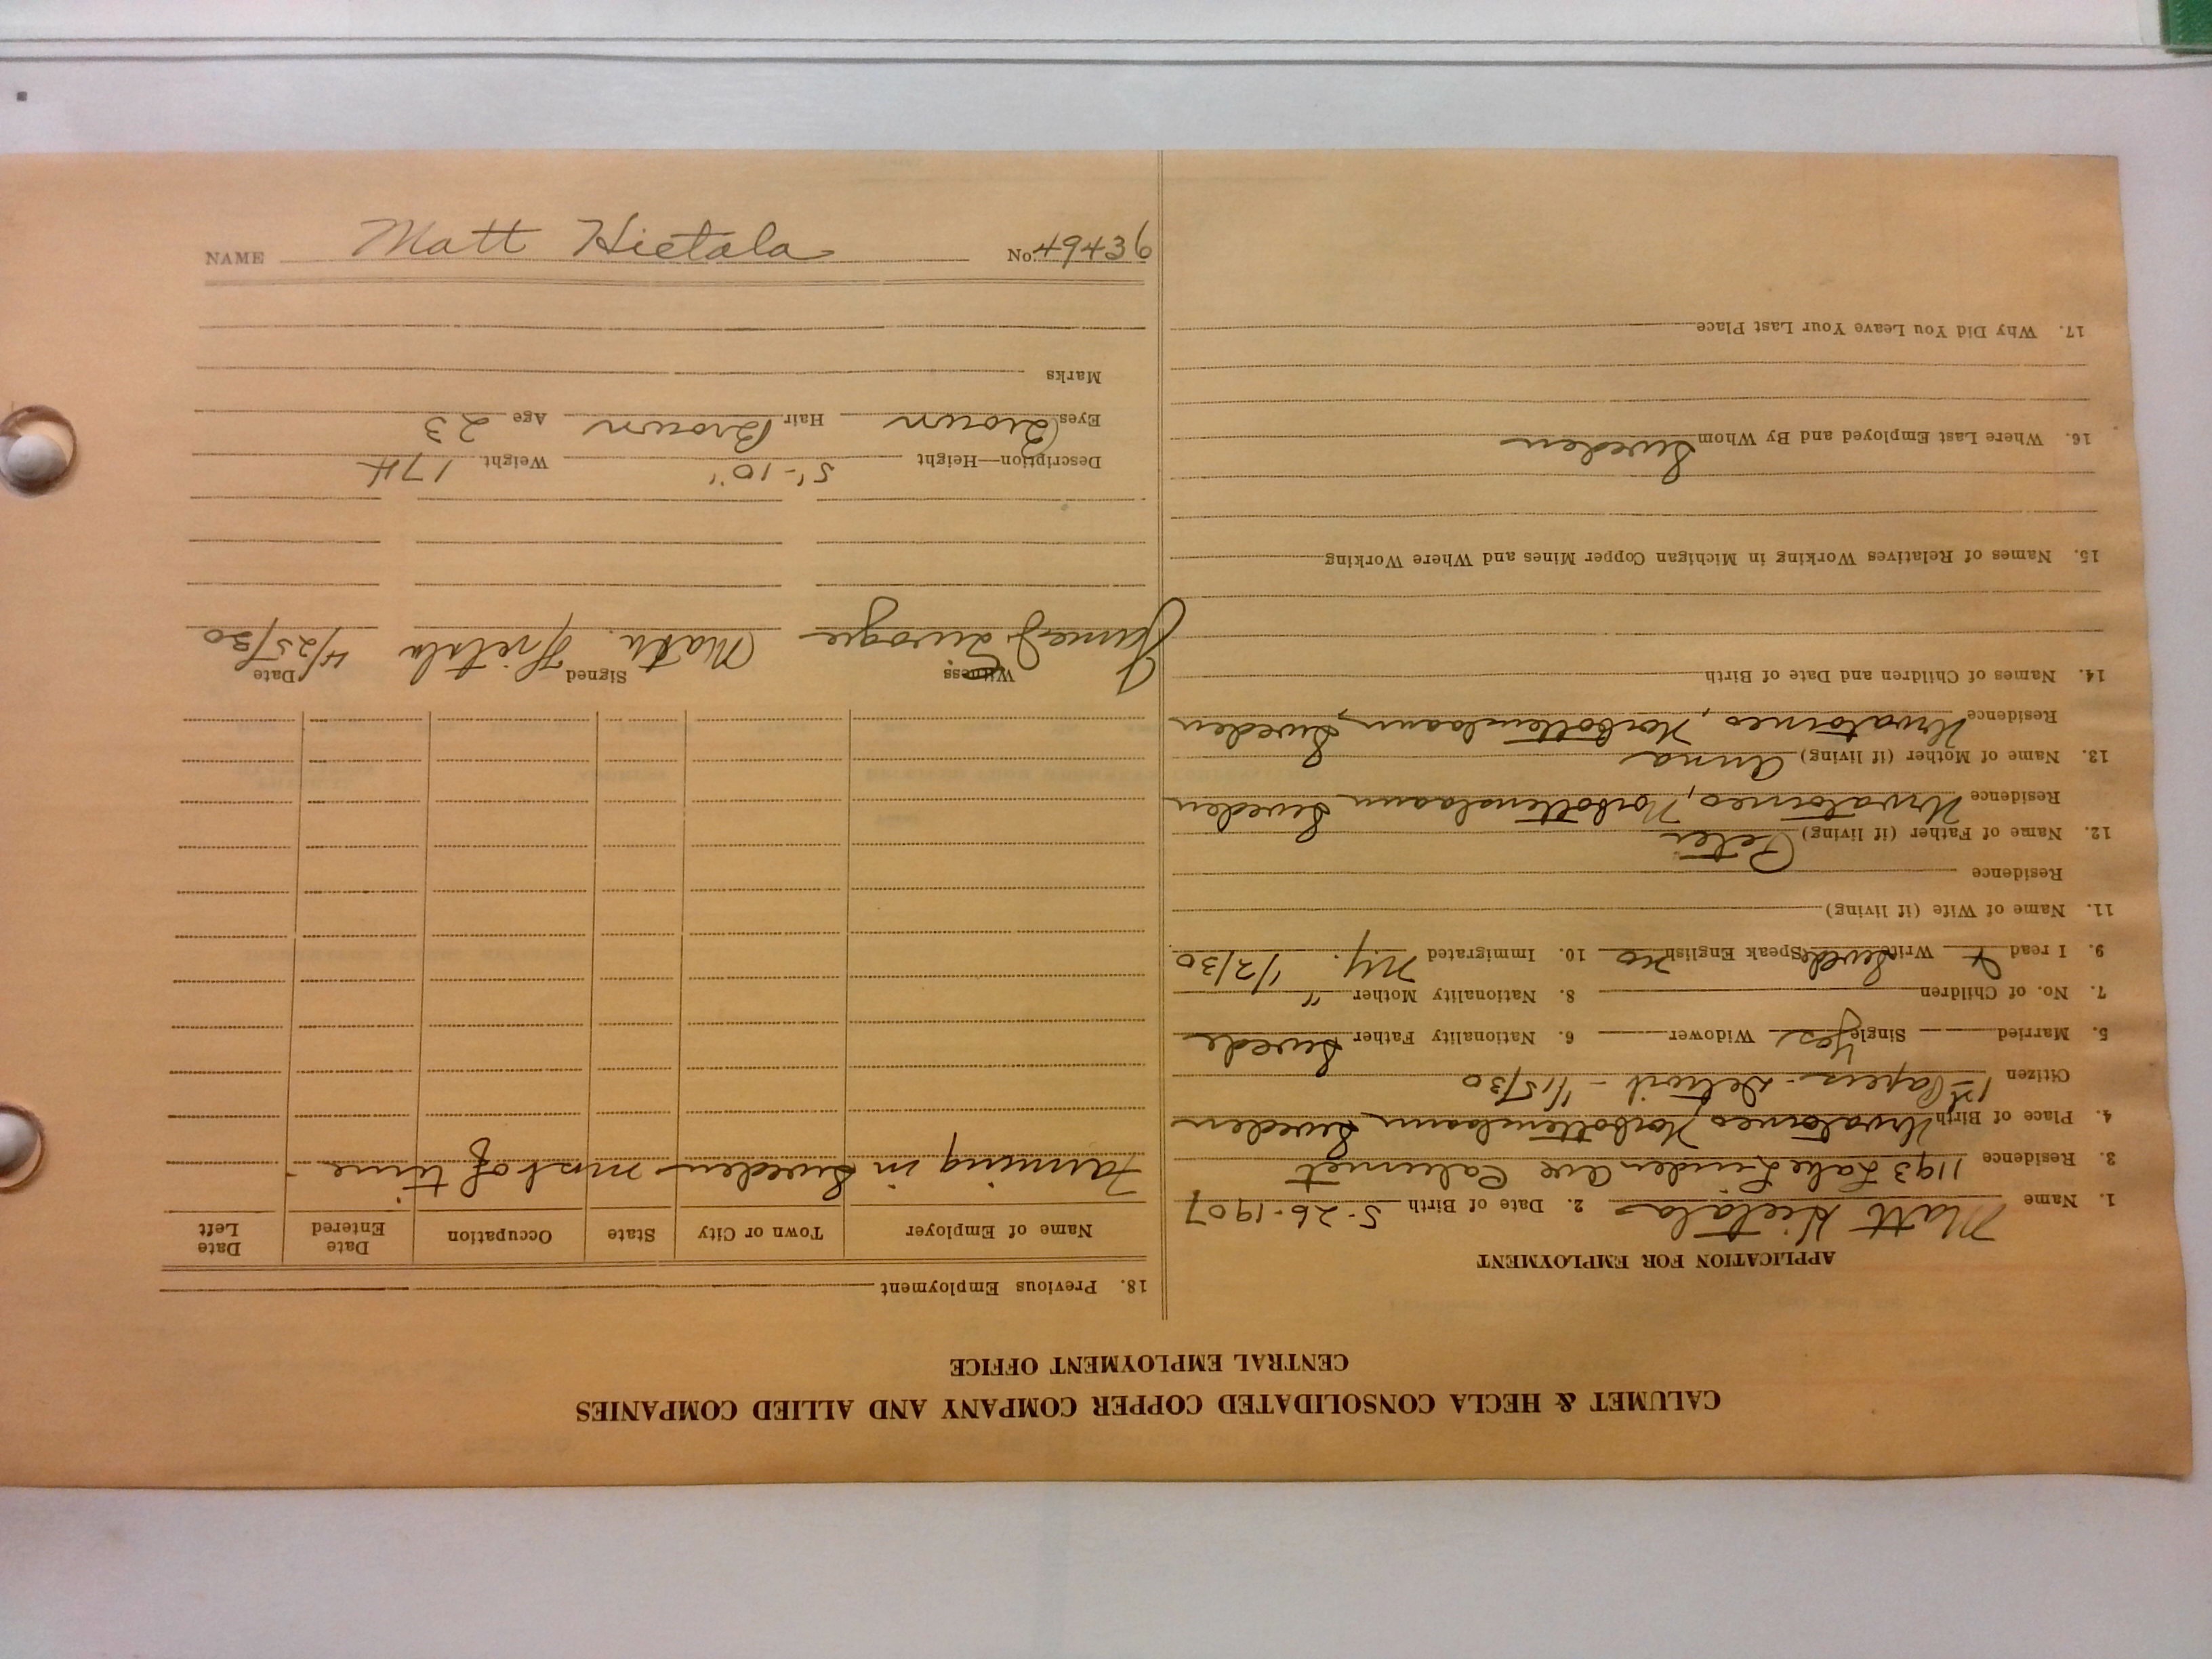 CALUMET & HECLA CONSOLIDATED COPPER COMPANY AND ALLIED COMPANIES
CENTRAL EMPLOYMENT OFFICE
APPLICATION FOR EMPLOYMENT
1. Name Matt Hietala 2. Date of Birth 5-26-1907
3. Residence 1193 Lake Linden Ave Calumet
4. Place of Birth Norbottenslaann Sweden
Citizen 1st Papers - Detroit - 1/15/30
5. Married — Single Yes Widower — 6. Nationality Father Swede
7. No. of Children 8. Nationality Mother "
9. I read & Write Swede Speak English no 10. Immigrated NY. 1/2/30
11. Name of Wife (if living)
Residence
12. Name of Father (if living) Peter
Residence Norbottenslaann Sweden
13. Name of Mother (if living) Anna
Residence Norbottenslaann, Sweden
14. Names of Children and Date of Birth
15. Names of Relatives Working in Michigan Copper Mines and Where Working
16. Where Last Employed and By Whom Sweden
17. Why Did You Leave Your Last Place
18. Previous Employment
Name of Employer Town or City State Occupation Date Entered Date Left
Farming in Sweden most of time.
Witness Signed Date
James Hietala 4/25/30
Description—Height 5'-10" Weight 174
Eyes Brown Hair Brown Age 23
Marks
NAME Matt Hietala No. 49436